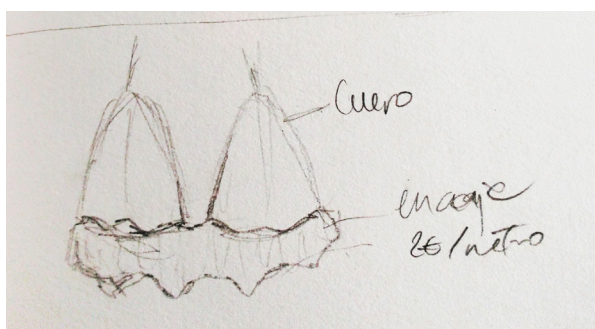 Cuero
encaje
2€/metro